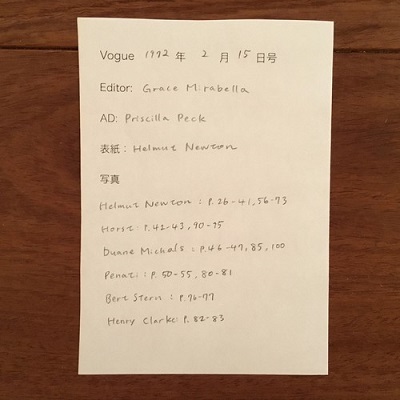 Vogue 1972 年 2 月 15 日号
Editor: Grace Mirabella
AD: Priscilla Peck
表紙: Helmut Newton
写真
Helmut Newton: P.26-41, 56-73
Horst: P.42-43, 90-95
Duane Michals: p.46-47, 85, 100
Penati: p.50-55, 80-81
Bert Stern: p.76-77
Henry Clarke: P.82-83